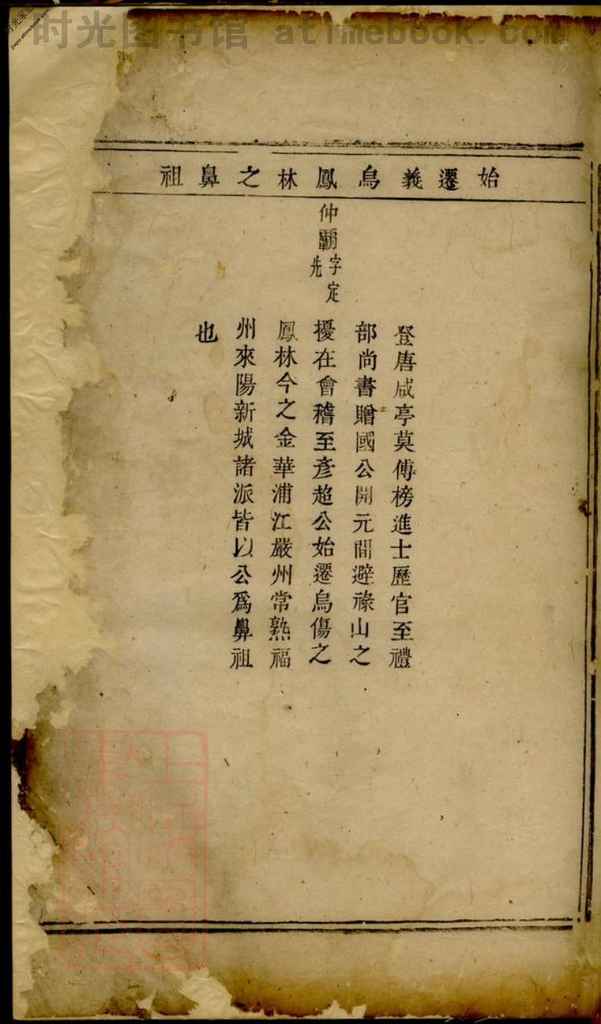 时光图书馆 atimebook.com
始遷義烏鳳林之鼻祖
仲霸字定先
登唐咸亭莫傅榜進士歷官至禮
部尚書贈國公開元間避祿山之
擾在會稽至彥超公始遷烏傷之
鳳林今之金華浦江嚴州常熟福
州來陽新城諸派皆以公爲鼻祖
也